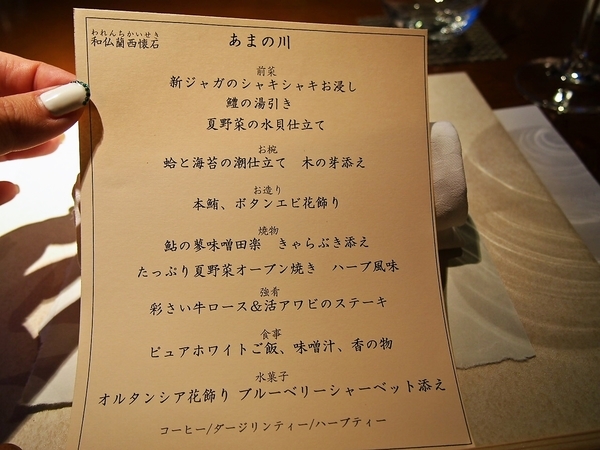 われんちかいせき
和仏蘭西懐石
あまの川
前菜
新ジャガのシャキシャキお浸し
鱧の湯引き
夏野菜の水貝仕立て
お椀
蛤と海苔の潮仕立て　木の芽添え
お造り
本鮪、ボタンエビ花飾り
焼物
鮎の蓼味噌田楽　きゃらぶき添え
たっぷり夏野菜オーブン焼き　ハーブ風味
強肴
彩さい牛ロース&活アワビのステーキ
食事
ピュアホワイトご飯、味噌汁、香の物
水菓子
オルタンシア花飾り ブルーベリーシャーベット添え
コーヒー/ダージリンティー/ハーブティー